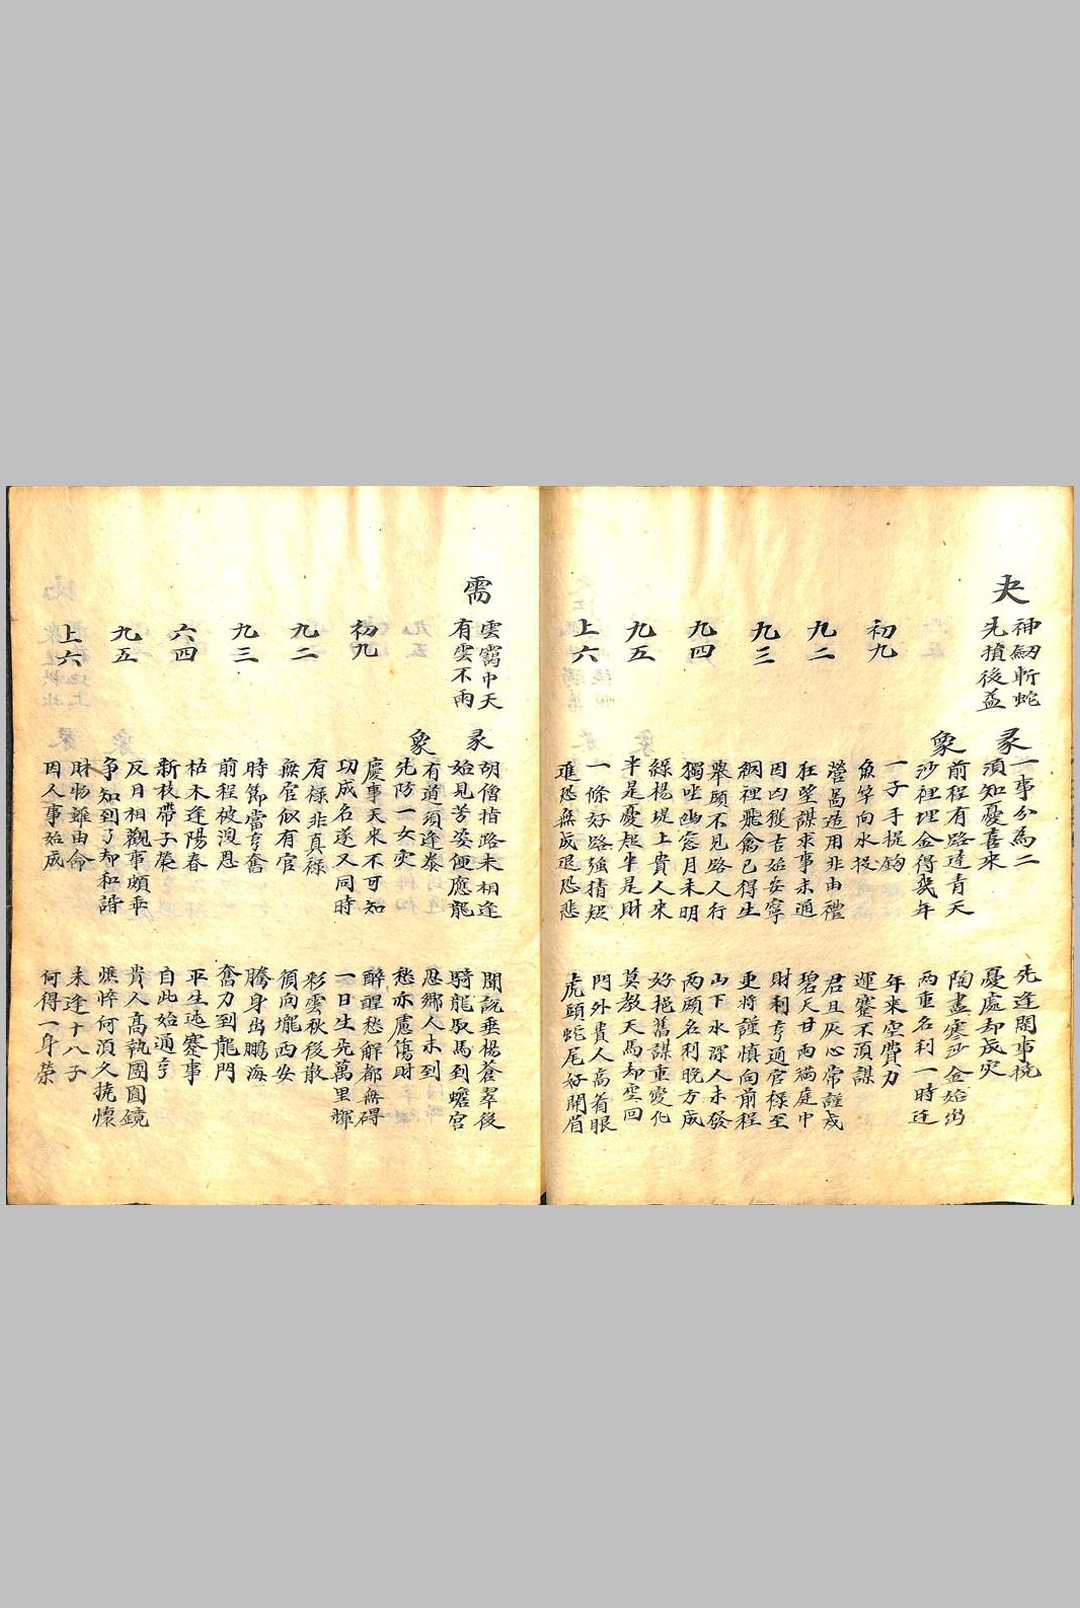 夬
神劒斬蛇
先損後益
彖
一事分為二 先逢閙事撓
須知憂喜來 憂處却成灾
象
前程有路達青天 陶盡寒沙金始出
沙裡埋金得幾年 兩重名利一時迁
初九
一子手提鉤 年來空費力
魚竿向水投 運蹇不須謀
九二
營為造用非由禮 君且灰心常謹戒
狂望謀求事未通 碧天甘雨滿庭中
九三
因凶獲吉始安寧 財利亨通官祿至
網裡飛禽已得生 更將謹慎向前程
九四
舉頭不見路人行 山下水深人未發
獨坐幽窓月未明 兩頭名利晚方成
九五
綠楊堤上貴人來 好把舊謀重變化
半是憂愁半是財 莫教天馬却空回
上六
一條好路強猜疑 門外貴人高着眼
進恐無成退恐悲 虎頭蛇尾好開眉
需
雲靄中天
有雲不雨
彖
胡僧指路未相逢 聞說垂楊蒼翠後
始見苦姿便應龍 騎龍馭馬到蟾宮
象
有道須逢泰 思鄉人未到
先防一女灾 愁亦慮傷財
初九
慶事天來不可知 醉醒愁解都無碍
功成名遂又同時 一日生光萬里輝
九二
有祿非真祿 彩雲秋後散
無官似有官 須向壠西安
九三
時節當亨奮 騰身出鵬海
前程被渥恩 奮力到龍門
六四
枯木逢陽春 平生迍蹇事
新枝帶子榮 自此始通亨
九五
反目相觀事頗乖 貴人高執團圓鏡
爭知到了却和諧 憔悴何須久撓懷
上六
財物雖由命 未逢十八子
因人事始成 何得一身榮